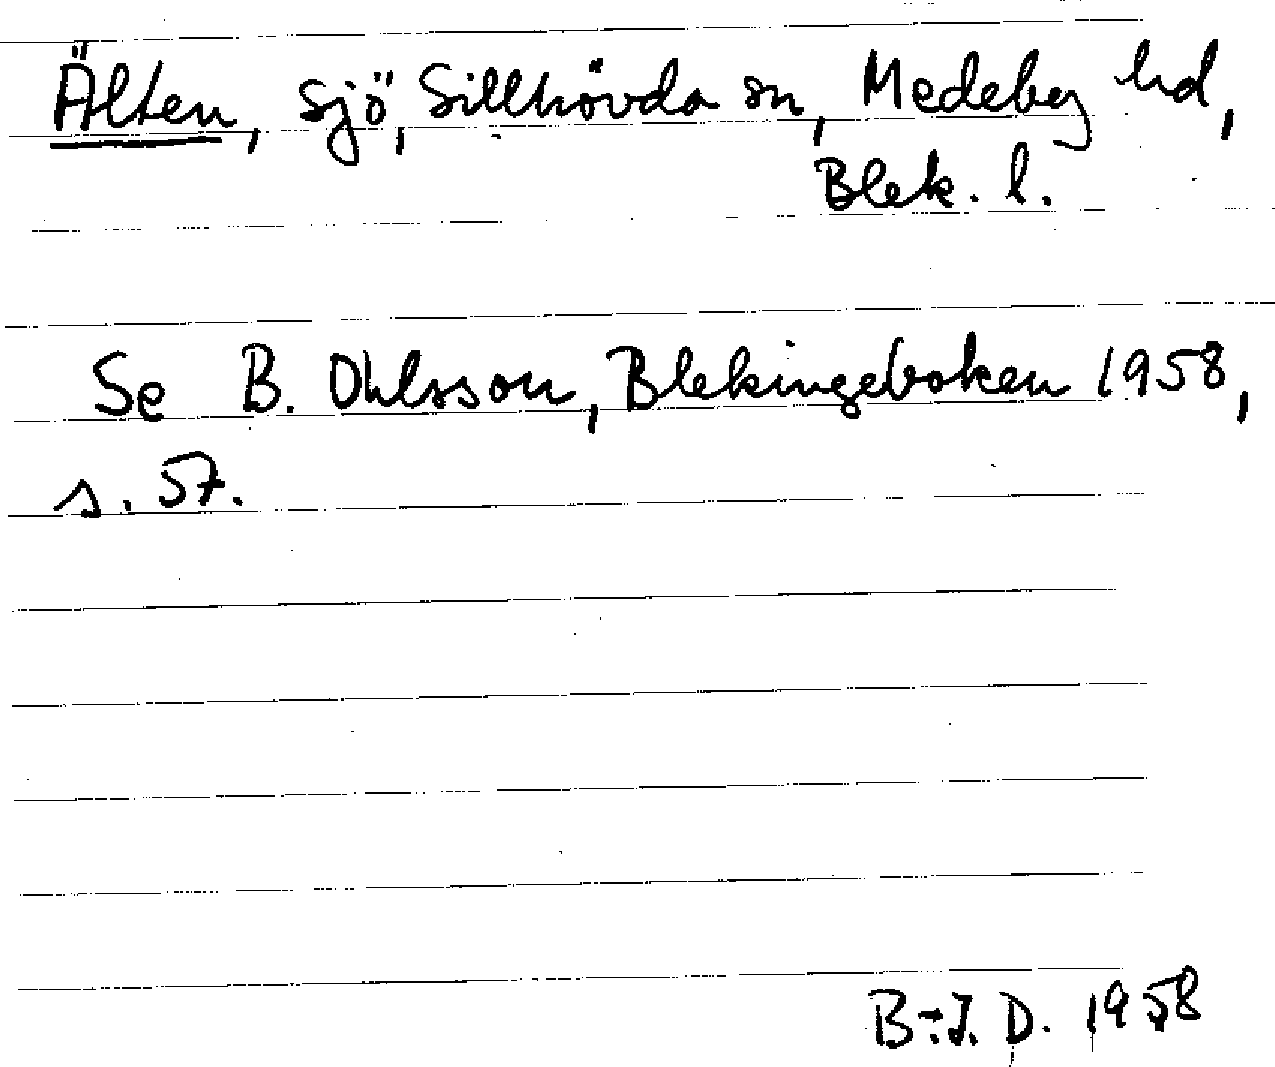 Älten, sjö, Sillhövda sn, Medeby hd,
Blek. l.
Se B. Ohlsson, Blekingeboken 1958,
s. 57.
B-J. D. 1958